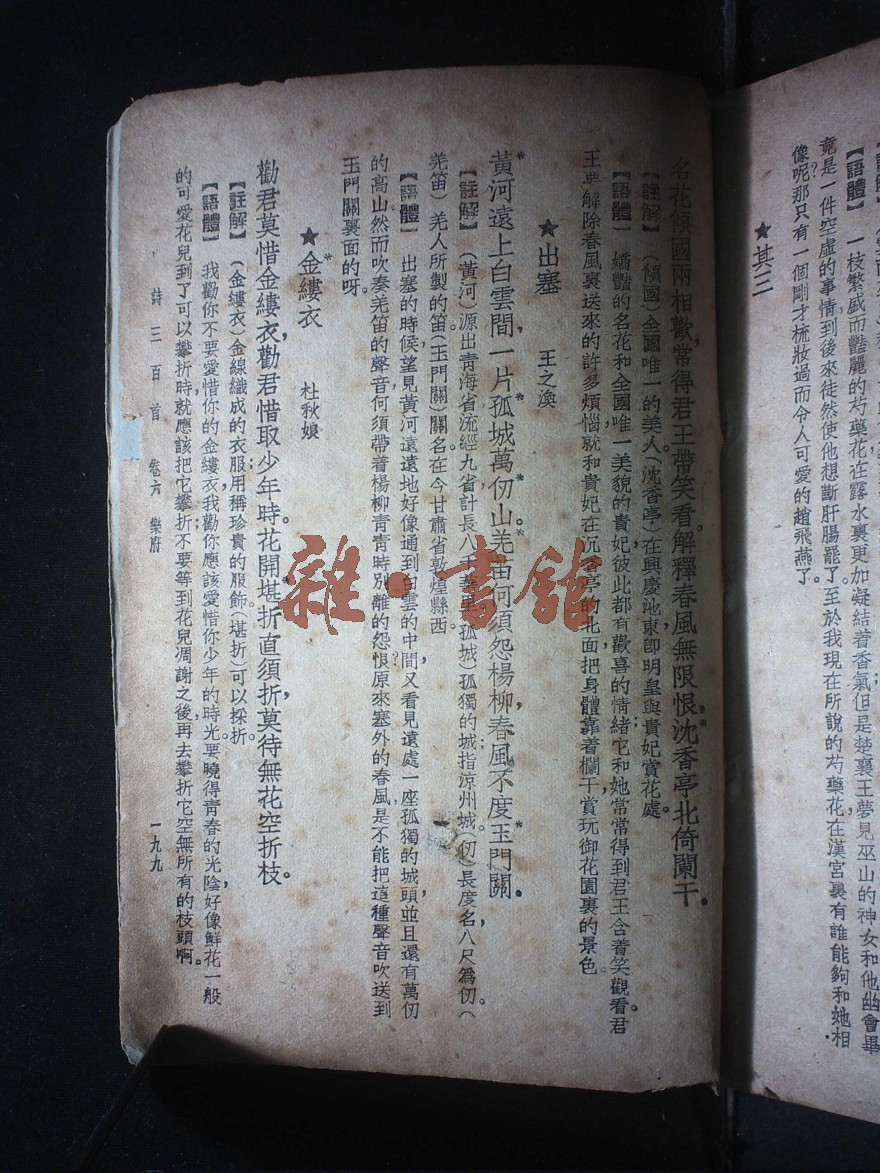 【語體】 一枝繁盛而艷麗的芍藥花在露水裏更加凝結着香氣;但是楚襄王夢見巫山的神女和他幽會畢
竟是一件空虛的事情到後來徒然使他想斷肝腸罷了。至於我現在所說的芍藥花在漢宮裏有誰能夠和她相
像呢?那只有一個剛才梳妝過而令人可愛的趙飛燕了。
★其三
名花傾國兩相歡,常得君王帶笑看。解釋春風無限恨,沈香亭北倚闌干。
【註解】 (傾國)全國唯一的美人。(沈香亭)在興慶池東即明皇與貴妃賞花處。
【語體】 嬌豔的名花和全國唯一美貌的貴妃彼此都有歡喜的情緒,它和她常常得到君王含着笑觀看。君
王要解除春風裏送來的許多煩惱,就和貴妃在沉香亭的北面把身體靠着欄干,賞玩御花園裏的景色。
★出塞 王之渙
黃河遠上白雲間,一片孤城萬仞山。羌笛何須怨楊柳,春風不度玉門關。
【註解】 (黃河)源出青海省流經九省計長八千 (孤城)孤獨的城指涼州城。(仞)長度名八尺爲仞。(
羌笛)羌人所製的笛。(玉門關)關名在今甘肅省敦煌縣西。
【語體】 出塞的時候,望見黃河遠遠地好像通到白雲的中間;又看見遠處一座孤獨的城頭,並且還有萬仞
的高山。然而吹奏羌笛的聲音何須帶着楊柳青青時別離的怨恨?原來塞外的春風是不能把這種聲音吹送到
玉門關裏面的呀。
★金縷衣 杜秋娘
勸君莫惜金縷衣,勸君惜取少年時。花開堪折直須折,莫待無花空折枝。
【註解】 (金縷衣)金線織成的衣服用稱珍貴的服飾。(堪折)可以採折。
【語體】 我勸你不要愛惜你的金縷衣,我勸你應該愛惜你少年的時光;要曉得青春的光陰好像鮮花一般
的可愛,花兒到了可以攀折時就應該把它攀折,不要等到花兒凋謝之後再去攀折它空無所有的枝頭啊。
詩三百首 卷六 樂府 一九九
雜·書館